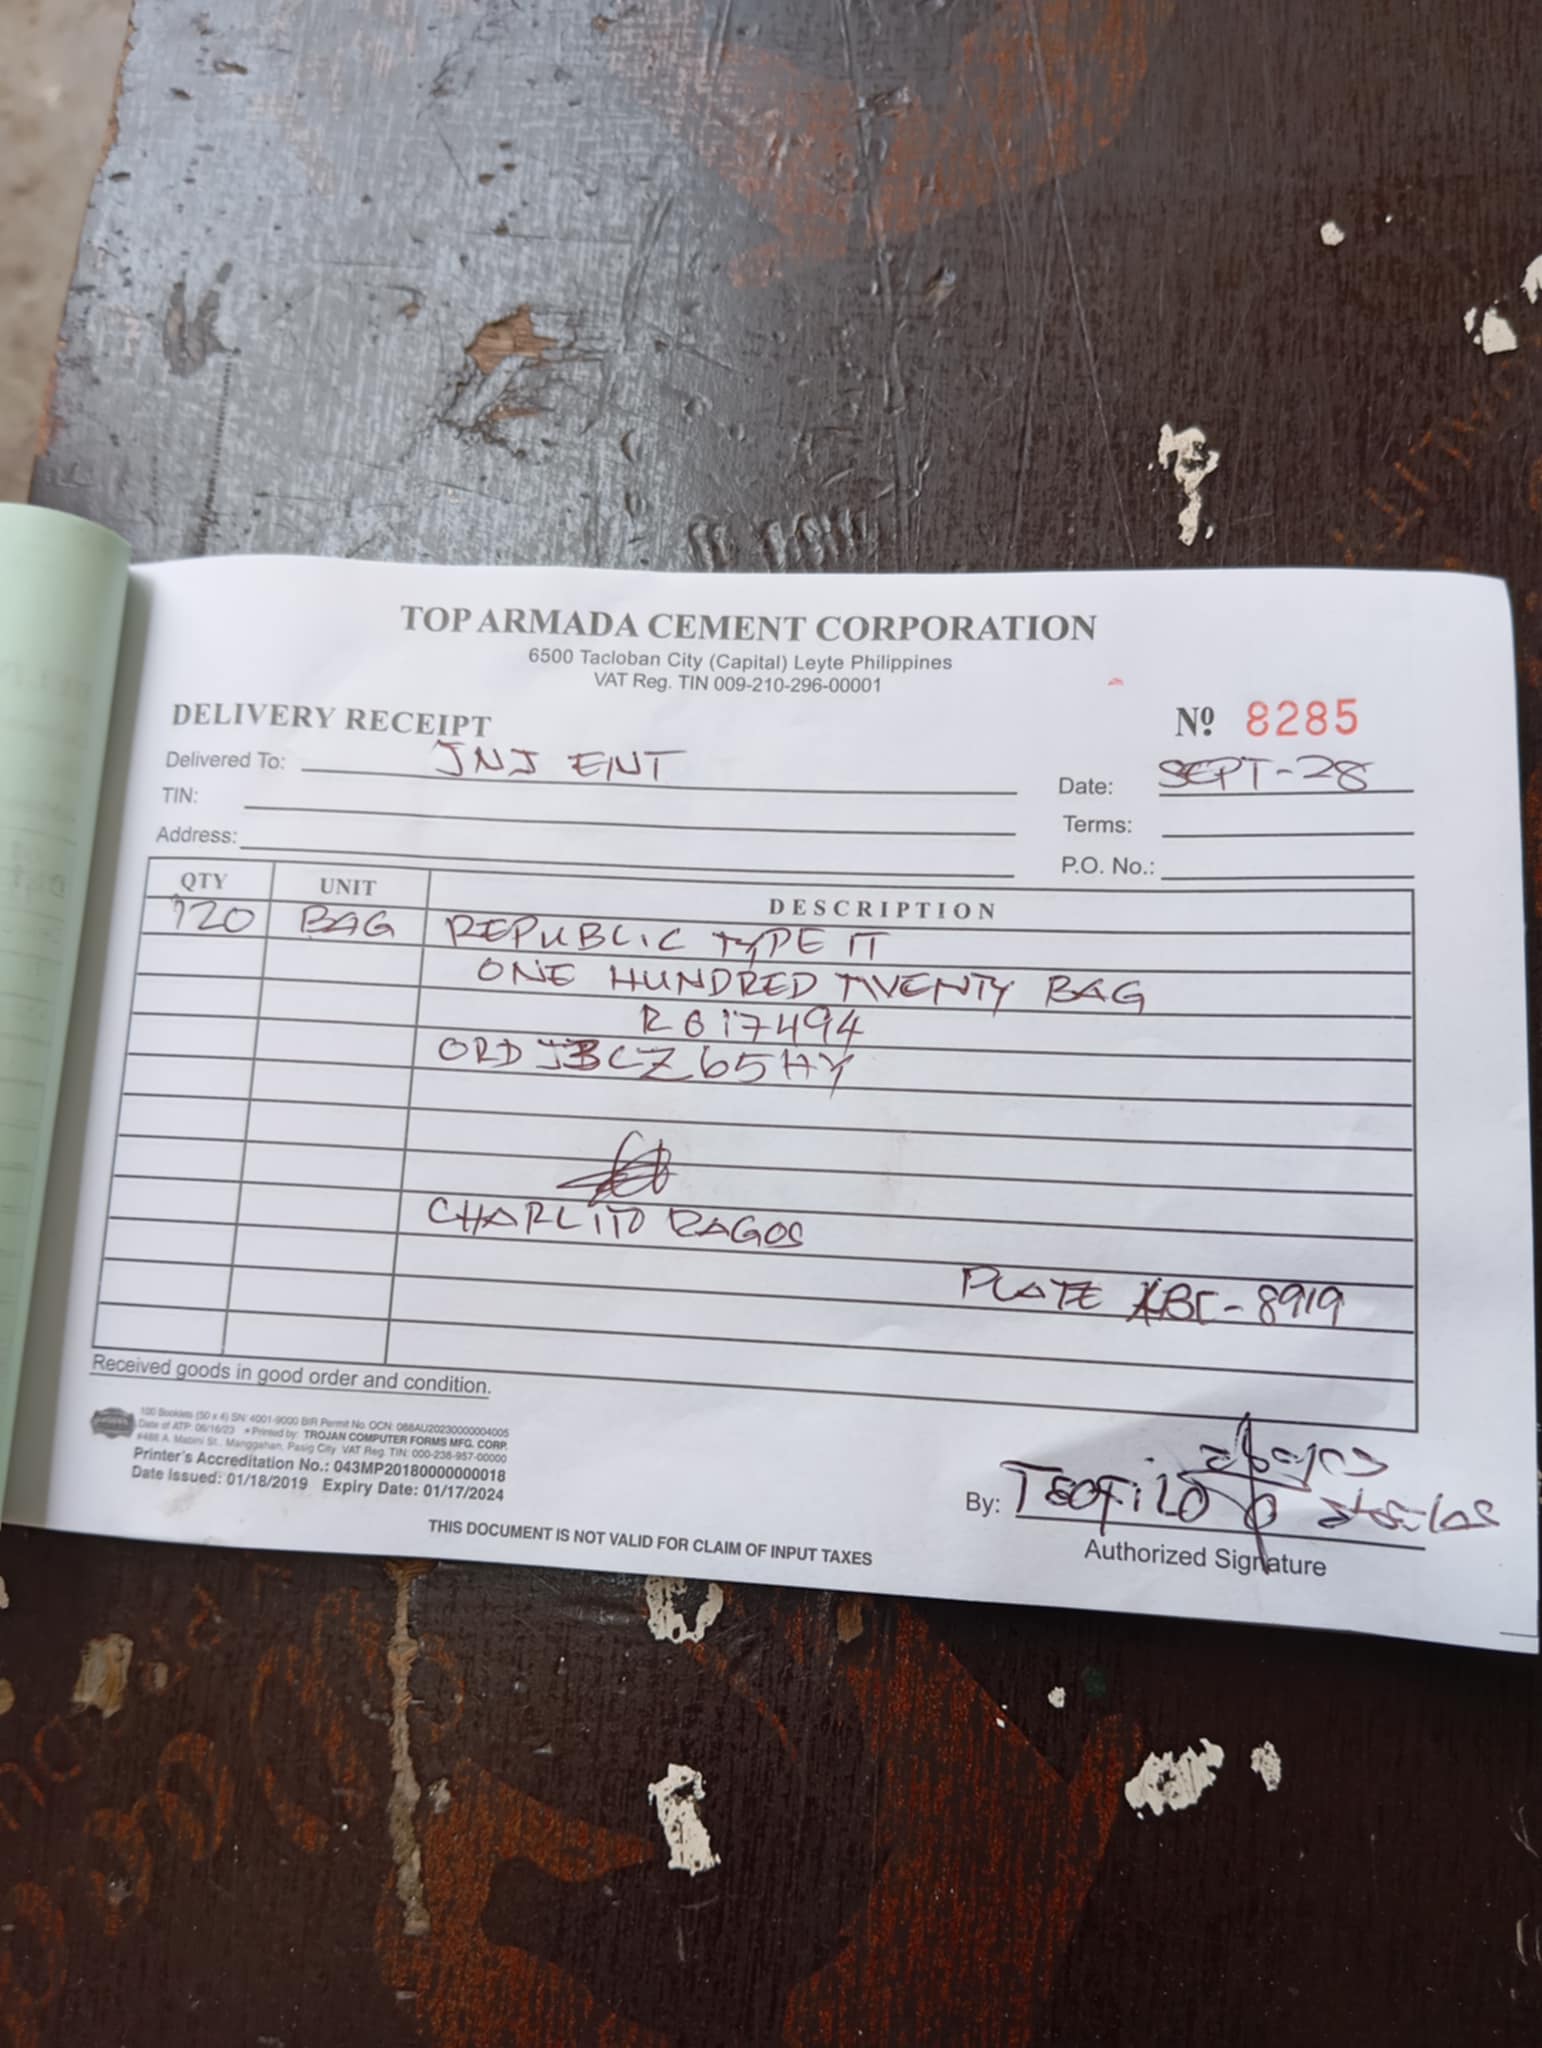 TOP ARMADA CEMENT CORPORATION
6500 Tacloban City (Capital) Leyte Philippines
VAT Reg. TIN 009-210-296-00001
DELIVERY RECEIPT
Nº 8285
Delivered To: JNJ ENT
Date: SEPT-28
TIN:
Terms:
Address:
P.O. No.:
QTY UNIT DESCRIPTION
120 BAG REPUBLIC TYPE IT
ONE HUNDRED TWENTY BAG
R617494
ORD JBCZ65HY
CHARLITO RAGOS
PLATE ABC-8919
Received goods in good order and condition.
100 Booklets (50 x 4) SN: 4001-9000 BIR Permit No. OCN: 088AU20230000004005
Date of ATP: 06/16/23 • Printed by: TROJAN COMPUTER FORMS MFG. CORP.
#488 A. Mabini St., Manggahan, Pasig City VAT Reg. TIN: 000-236-957-00000
Printer's Accreditation No.: 043MP20180000000018
Date Issued: 01/18/2019 Expiry Date: 01/17/2024
By: TEOFILO
Authorized Signature
THIS DOCUMENT IS NOT VALID FOR CLAIM OF INPUT TAXES